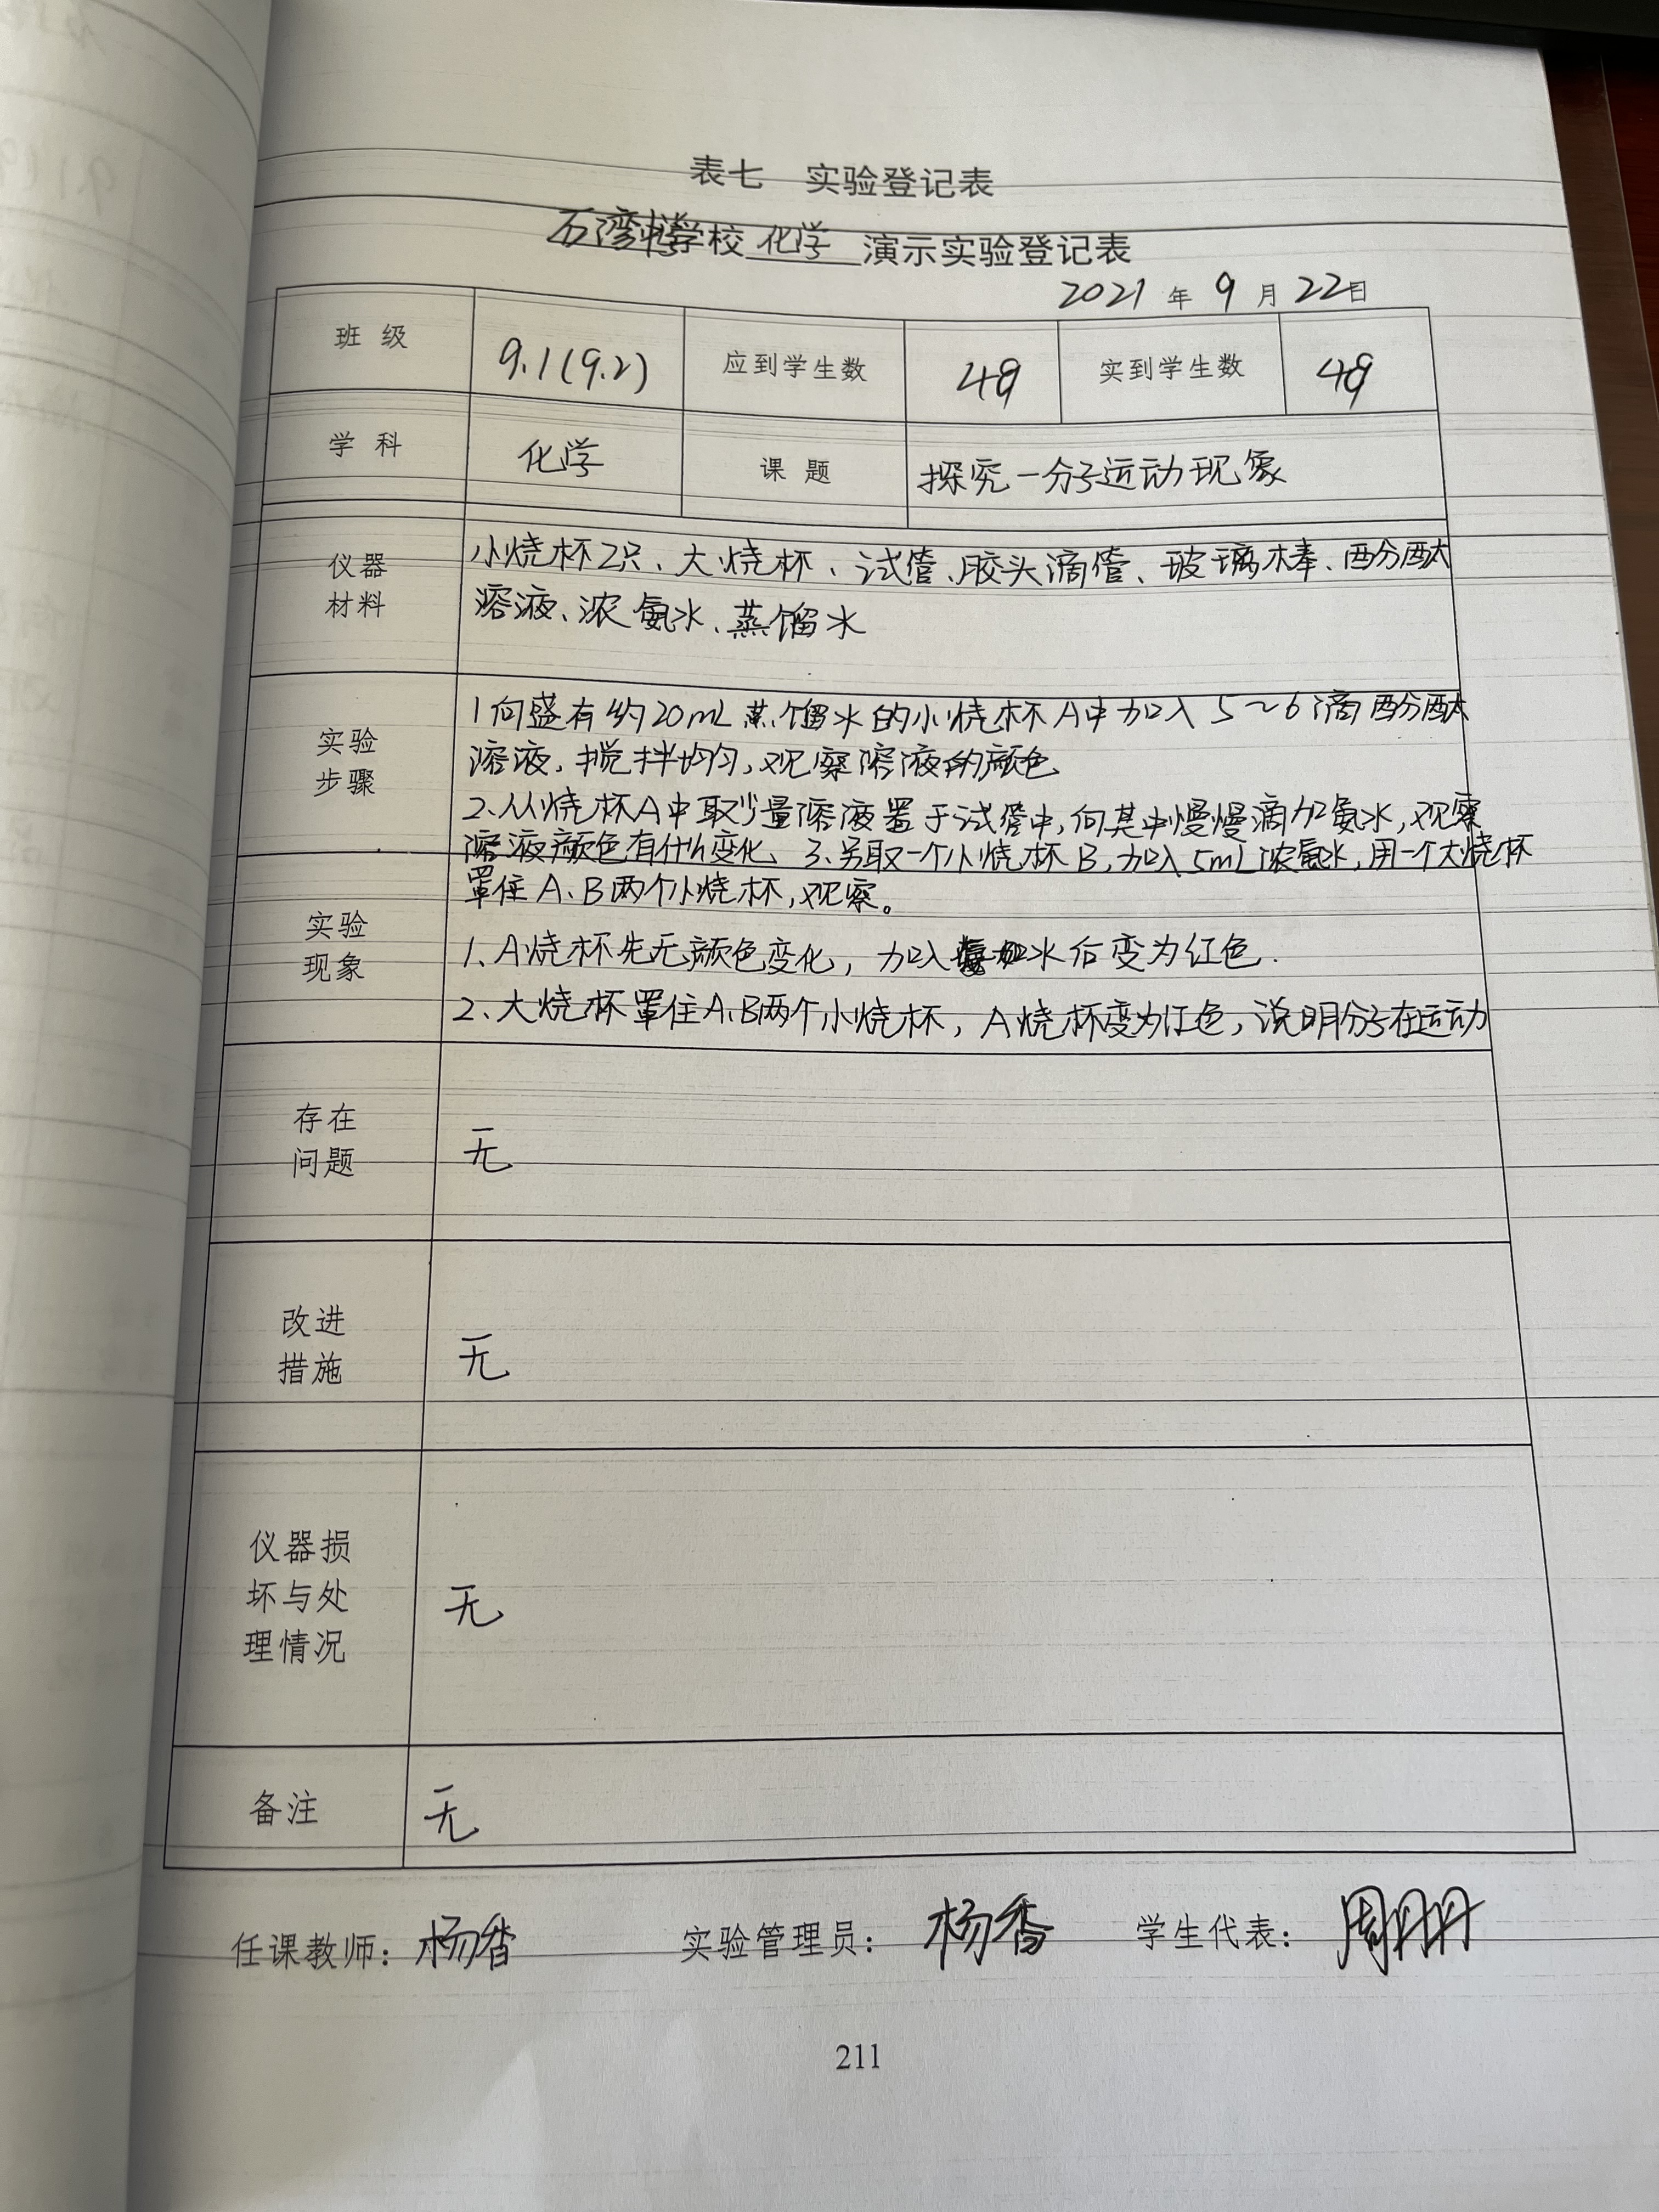 表七 实验登记表
石湾中学学校 化学 演示实验登记表
2021 年 9 月 22 日
班 级 9.1(9.2) 应到学生数 49 实到学生数 49
学 科 化学 课 题 探究一分子运动现象
仪器
材料
小烧杯2只、大烧杯、试管、胶头滴管、玻璃棒、酚酞
溶液、浓氨水、蒸馏水
实验
步骤
1向盛有约20mL蒸馏水的小烧杯A中加入5~6滴酚酞
溶液,搅拌均匀,观察溶液的颜色
2、从烧杯A中取少量溶液置于试管中,向其中慢慢滴加氨水,观察
溶液颜色有什么变化、3、另取一个小烧杯B,加入5mL浓氨水,用一个大烧杯
罩住A、B两个小烧杯,观察。
实验
现象
1、A烧杯先无颜色变化,加入水后变为红色.
2、大烧杯罩住A、B两个小烧杯,A烧杯变为红色,说明分子在运动
存在
问题
无
改进
措施
无
仪器损
坏与处
理情况
无
备注 无
任课教师: 杨香 实验管理员: 杨香 学生代表: 周丹丹
211